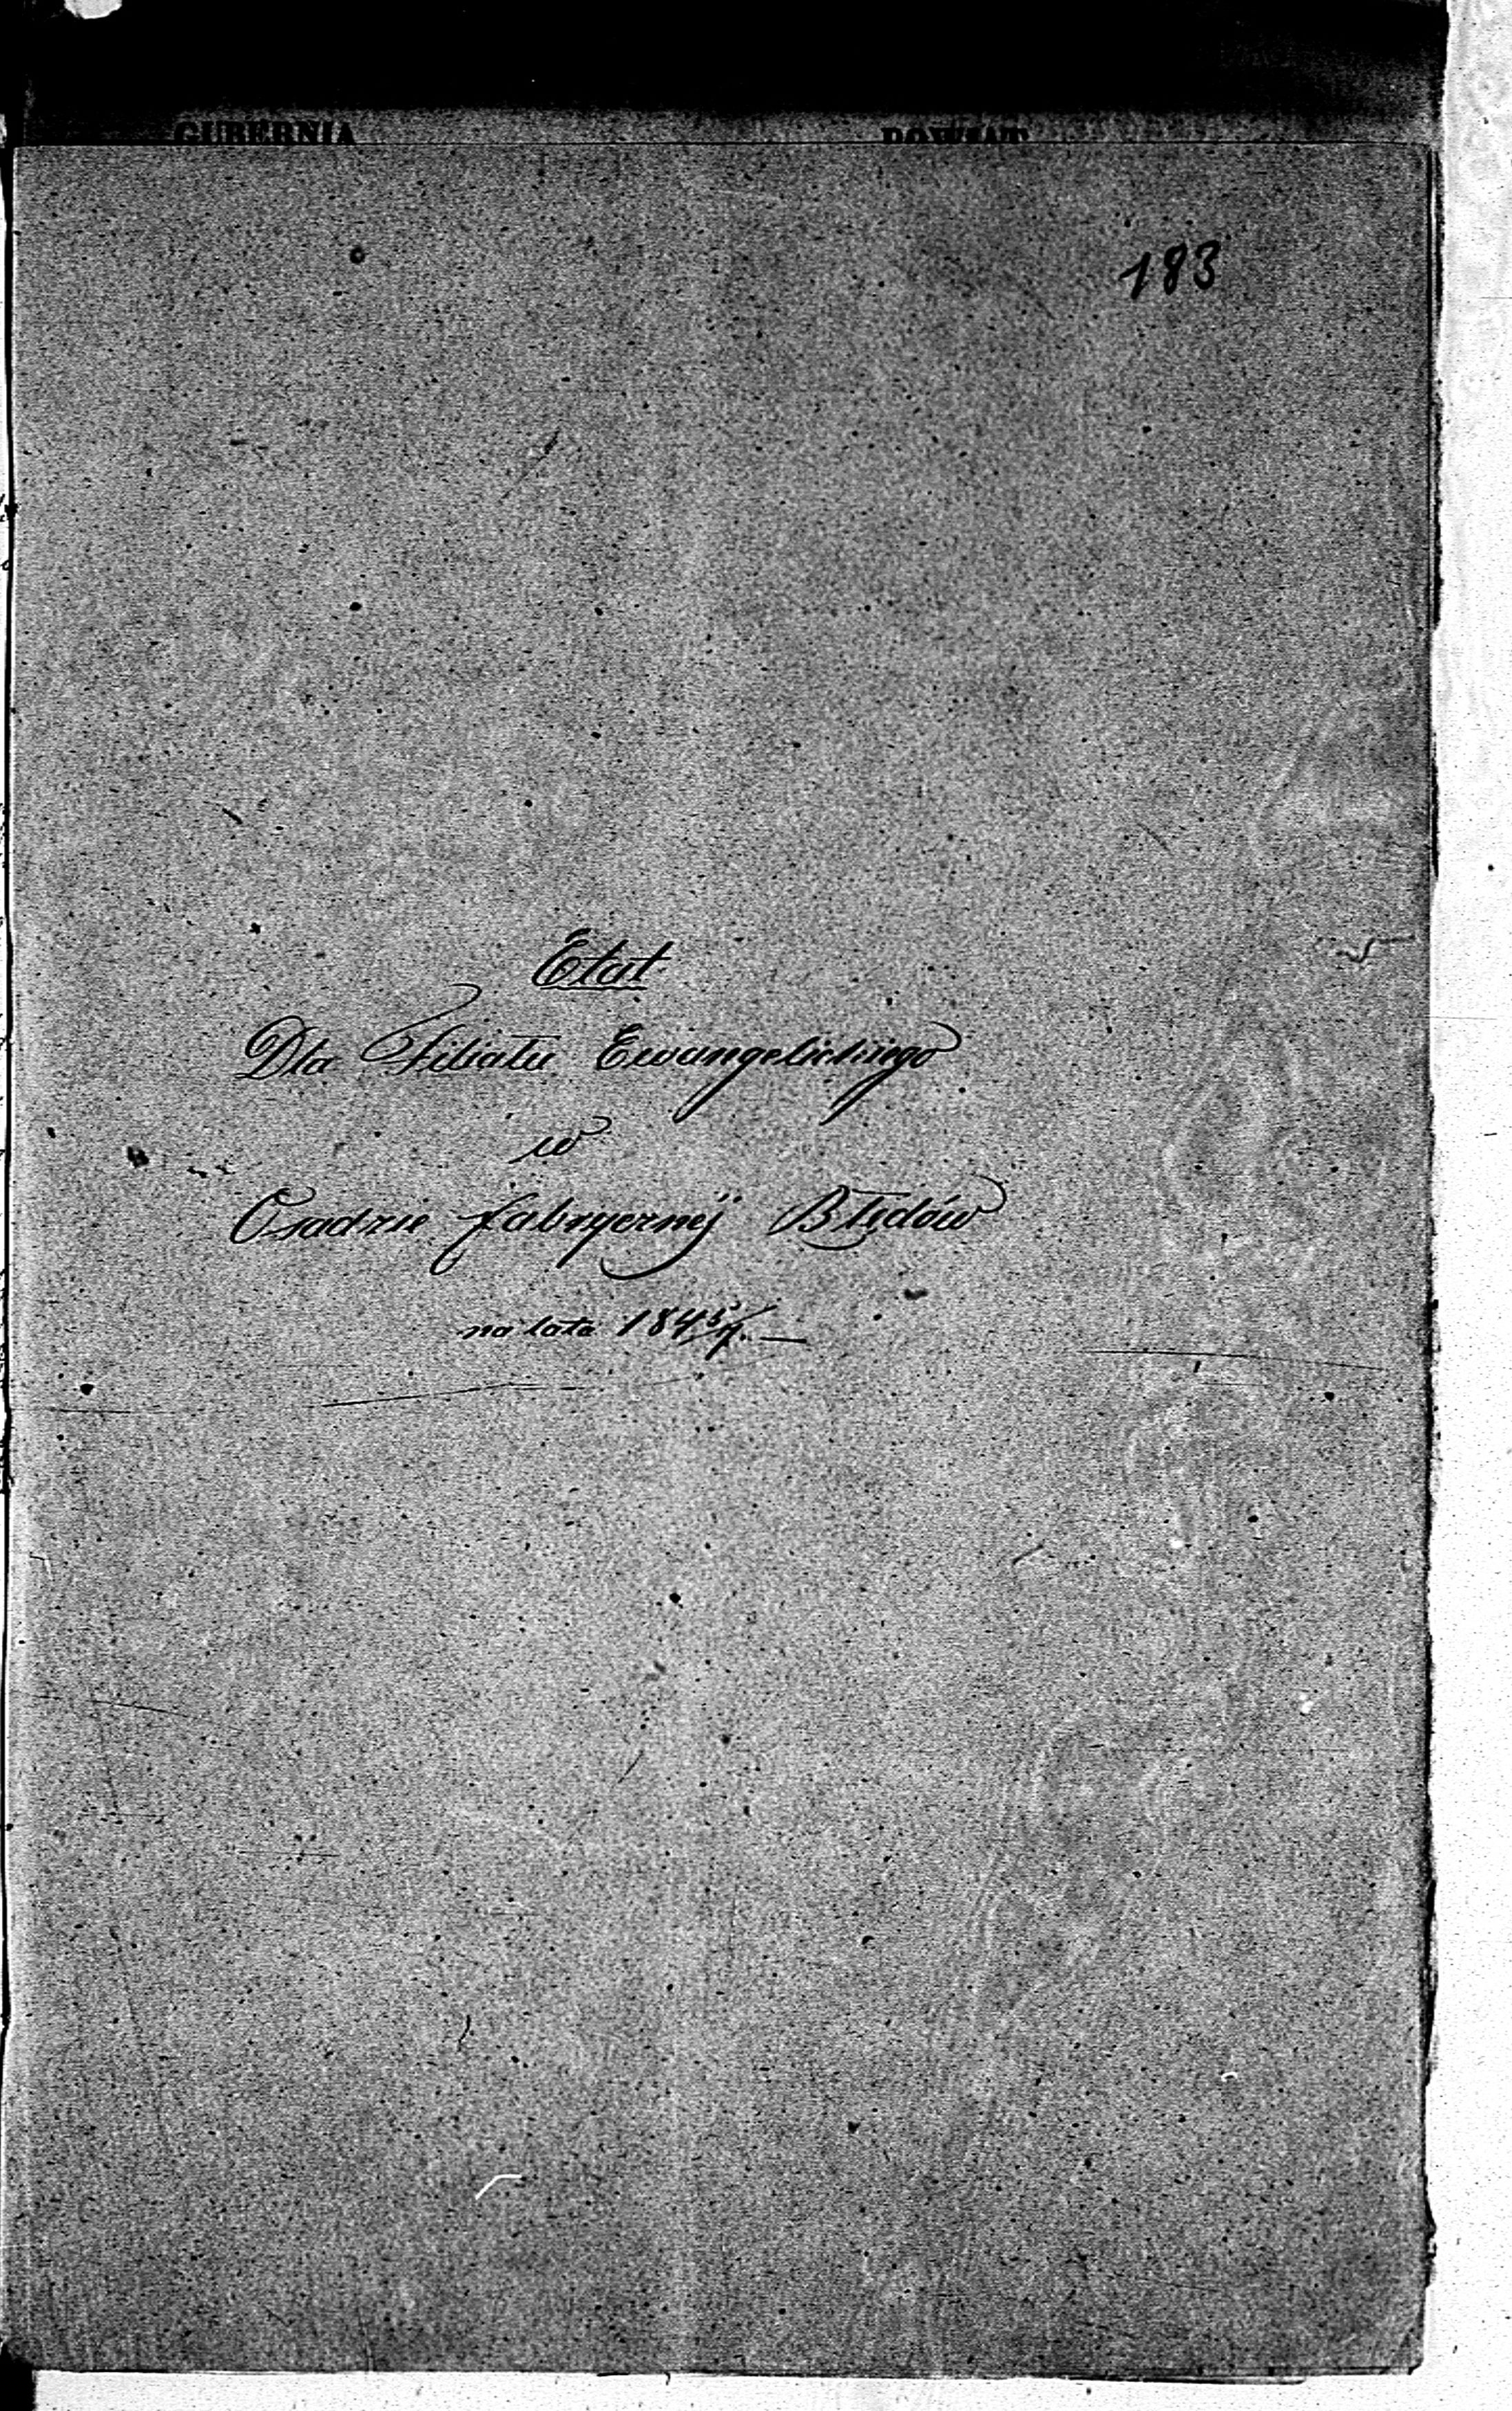 GUBERNIA POWIAT
183
Etat
Dla Filiału Ewangelickiego
w
Osadzie fabrycznéj Błędów
na lata 1845/7.